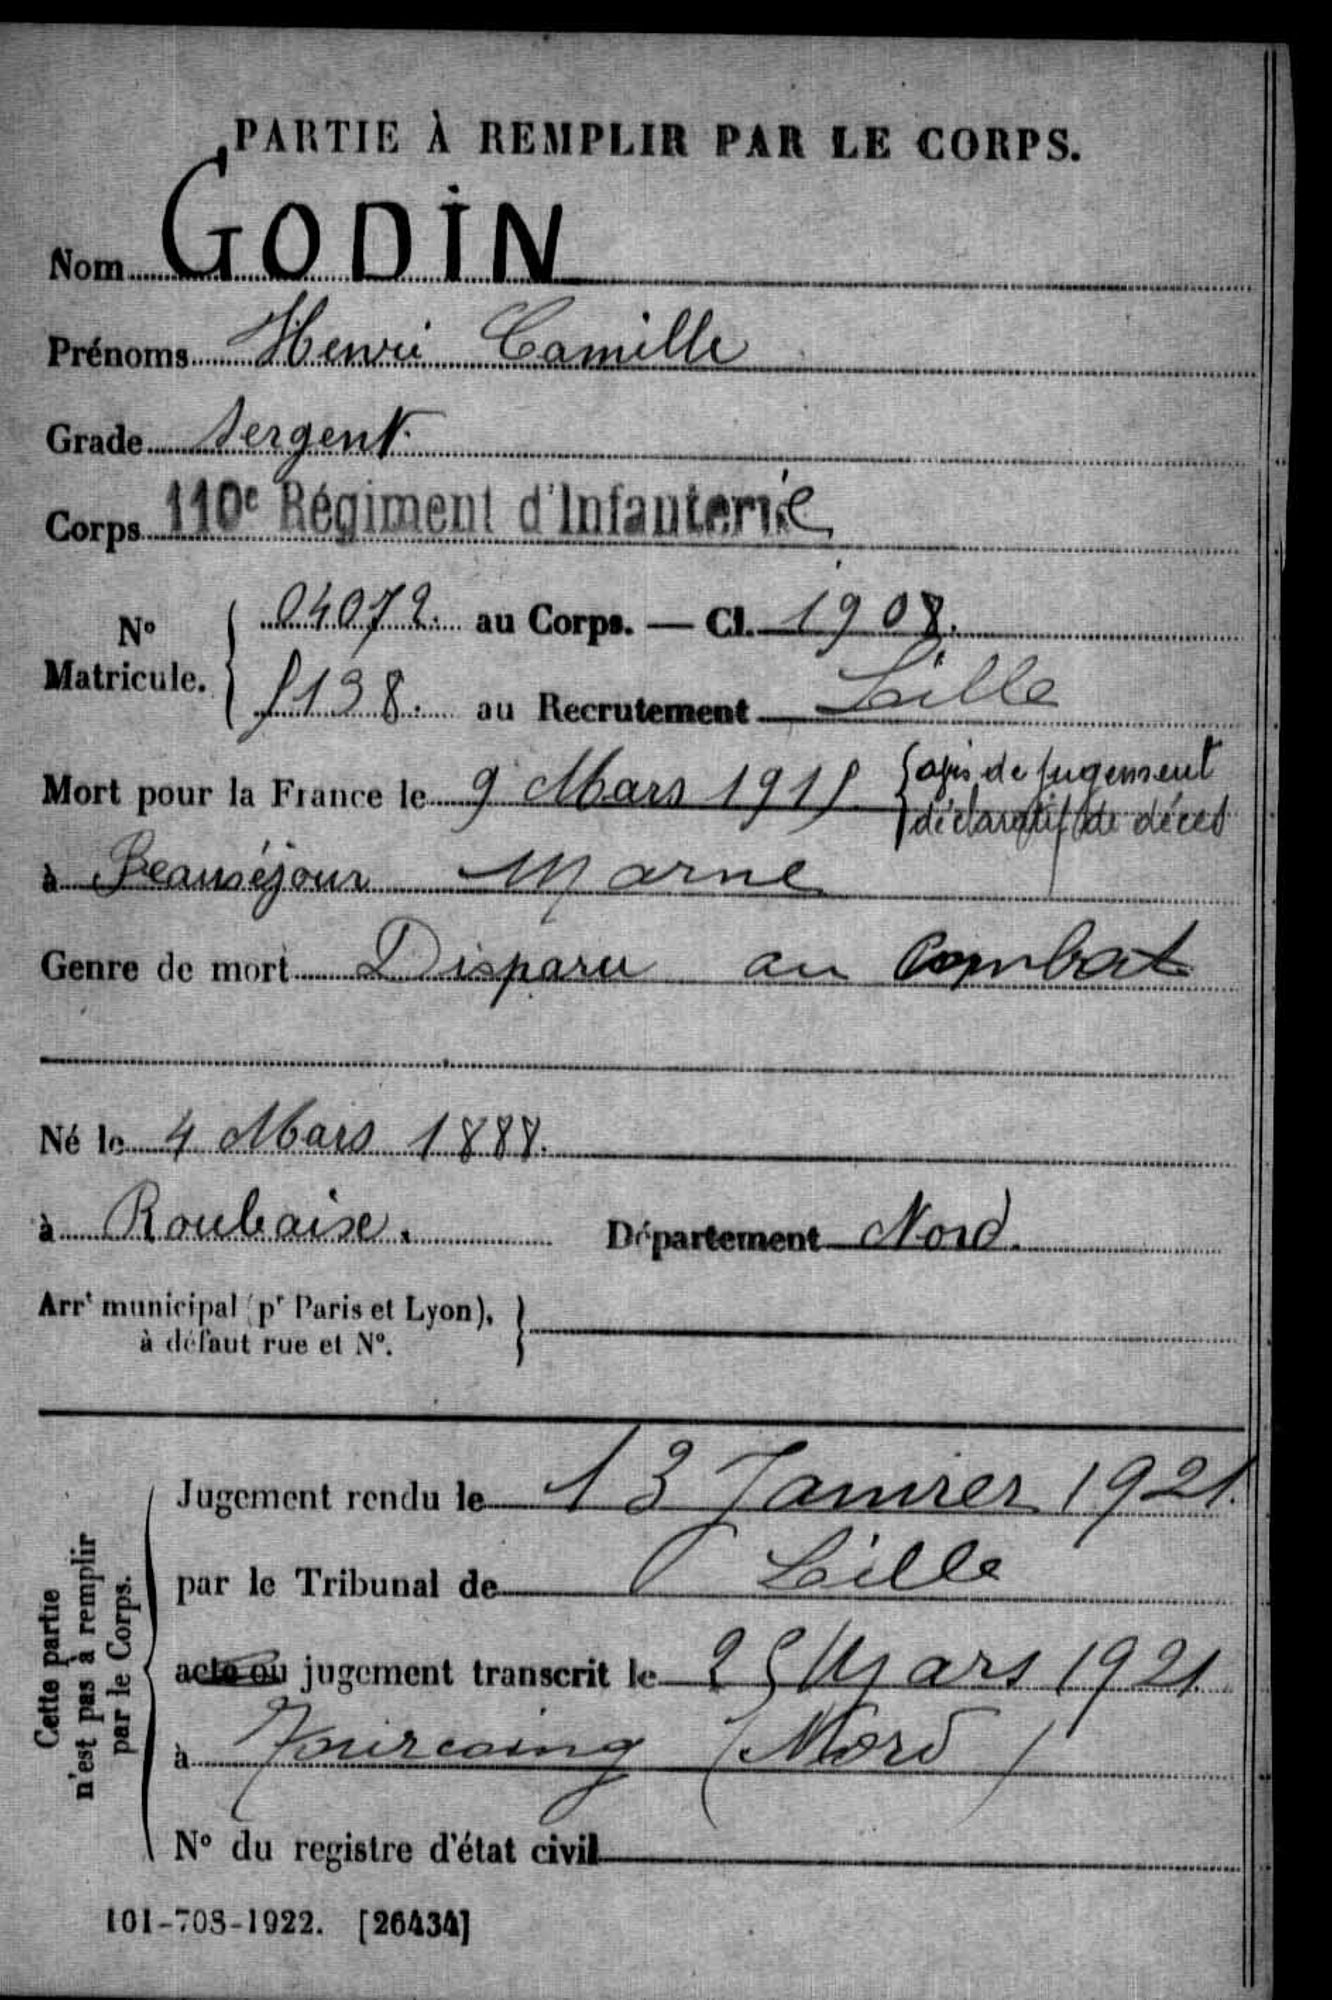 PARTIE À REMPLIR PAR LE CORPS.
Nom GODIN
Prénoms Henri Camille
Grade Sergent
Corps 110e Régiment d'Infanterie
No Matricule. 04072. au Corps. — Cl. 1908.
5138. au Recrutement Lille
Mort pour la France le 9 Mars 1915 de jugement déclaratif de décès
à Beauséjour Marne
Genre de mort Disparu au Combat
Né le 4 Mars 1888.
à Roubaise. Département Nord.
Arrt municipal (pr Paris et Lyon),
à défaut rue et No.
Cette partie
n'est pas à remplir
par le Corps.
Jugement rendu le 13 Janvier 1921.
par le Tribunal de Lille
acte ou jugement transcrit le 25 Mars 1921.
à Tourcoing (Nord)
No du registre d'état civil
101-708-1922. [26434]